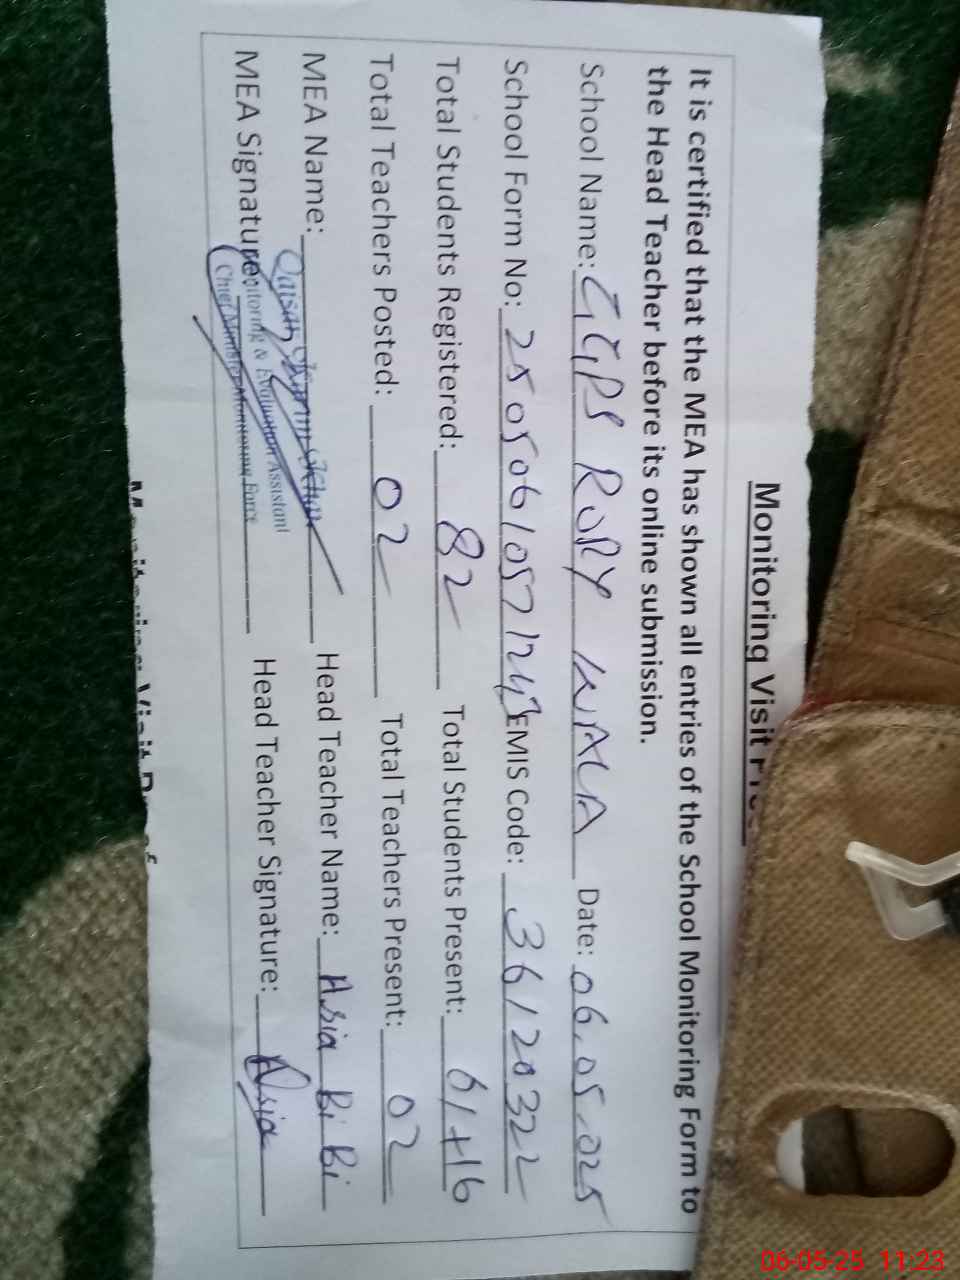 Monitoring Visit
It is certified that the MEA has shown all entries of the School Monitoring Form to
the Head Teacher before its online submission.
School Name: GGPS RORY WALA Date: 06.05.025
School Form No: EMIS Code: 36120322
Total Students Registered: 82 Total Students Present: 61+16
Total Teachers Posted: 02 Total Teachers Present: 02
MEA Name: Head Teacher Name: Asia Bi Bi
MEA Signature Head Teacher Signature: Asia
Monitoring & Evaluation Assistant
Chief Minister Monitoring Force
06-05-25 11:23